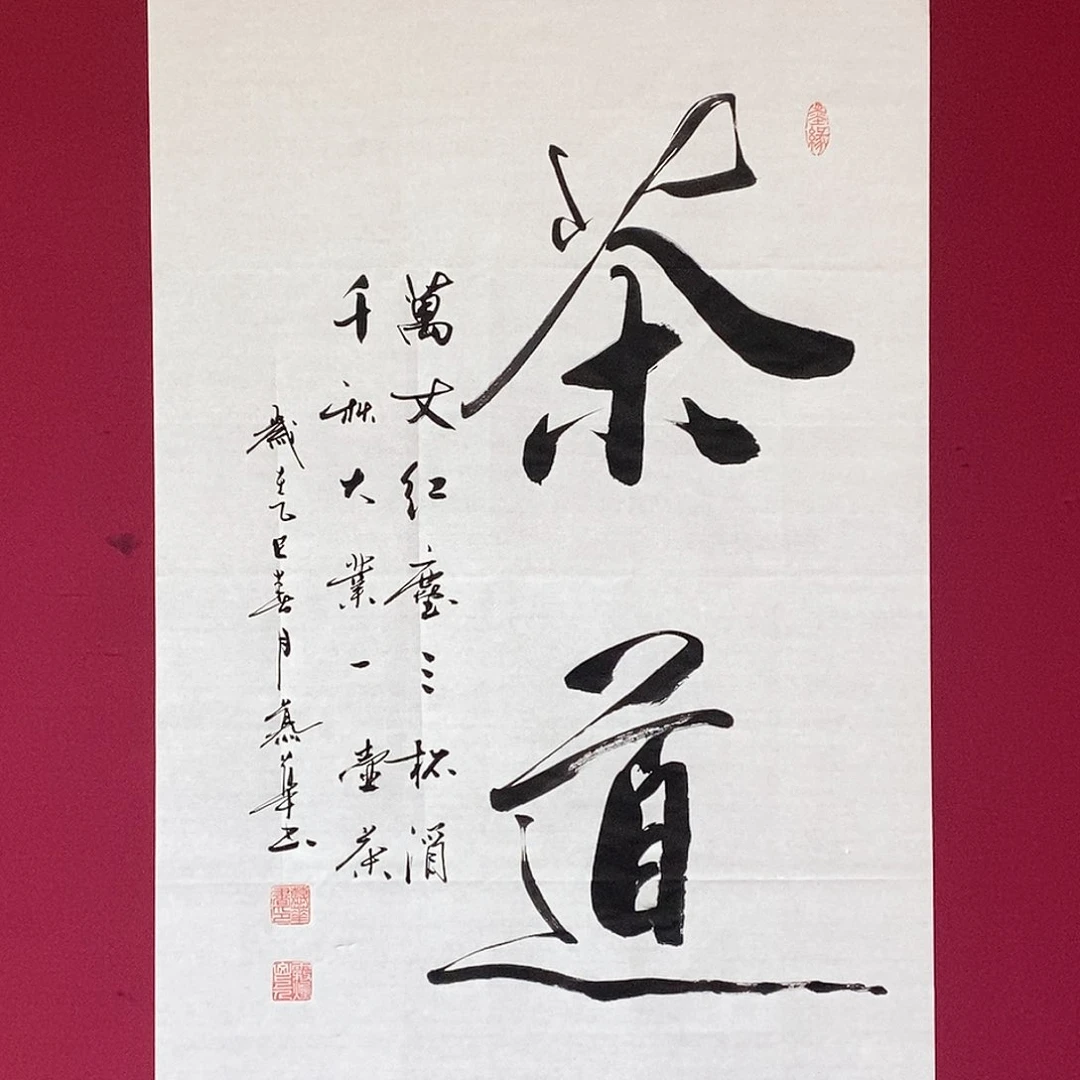 墨緣
茶道
萬丈紅塵三杯酒
千秋大業一壺茶
歲在乙巳春月華書